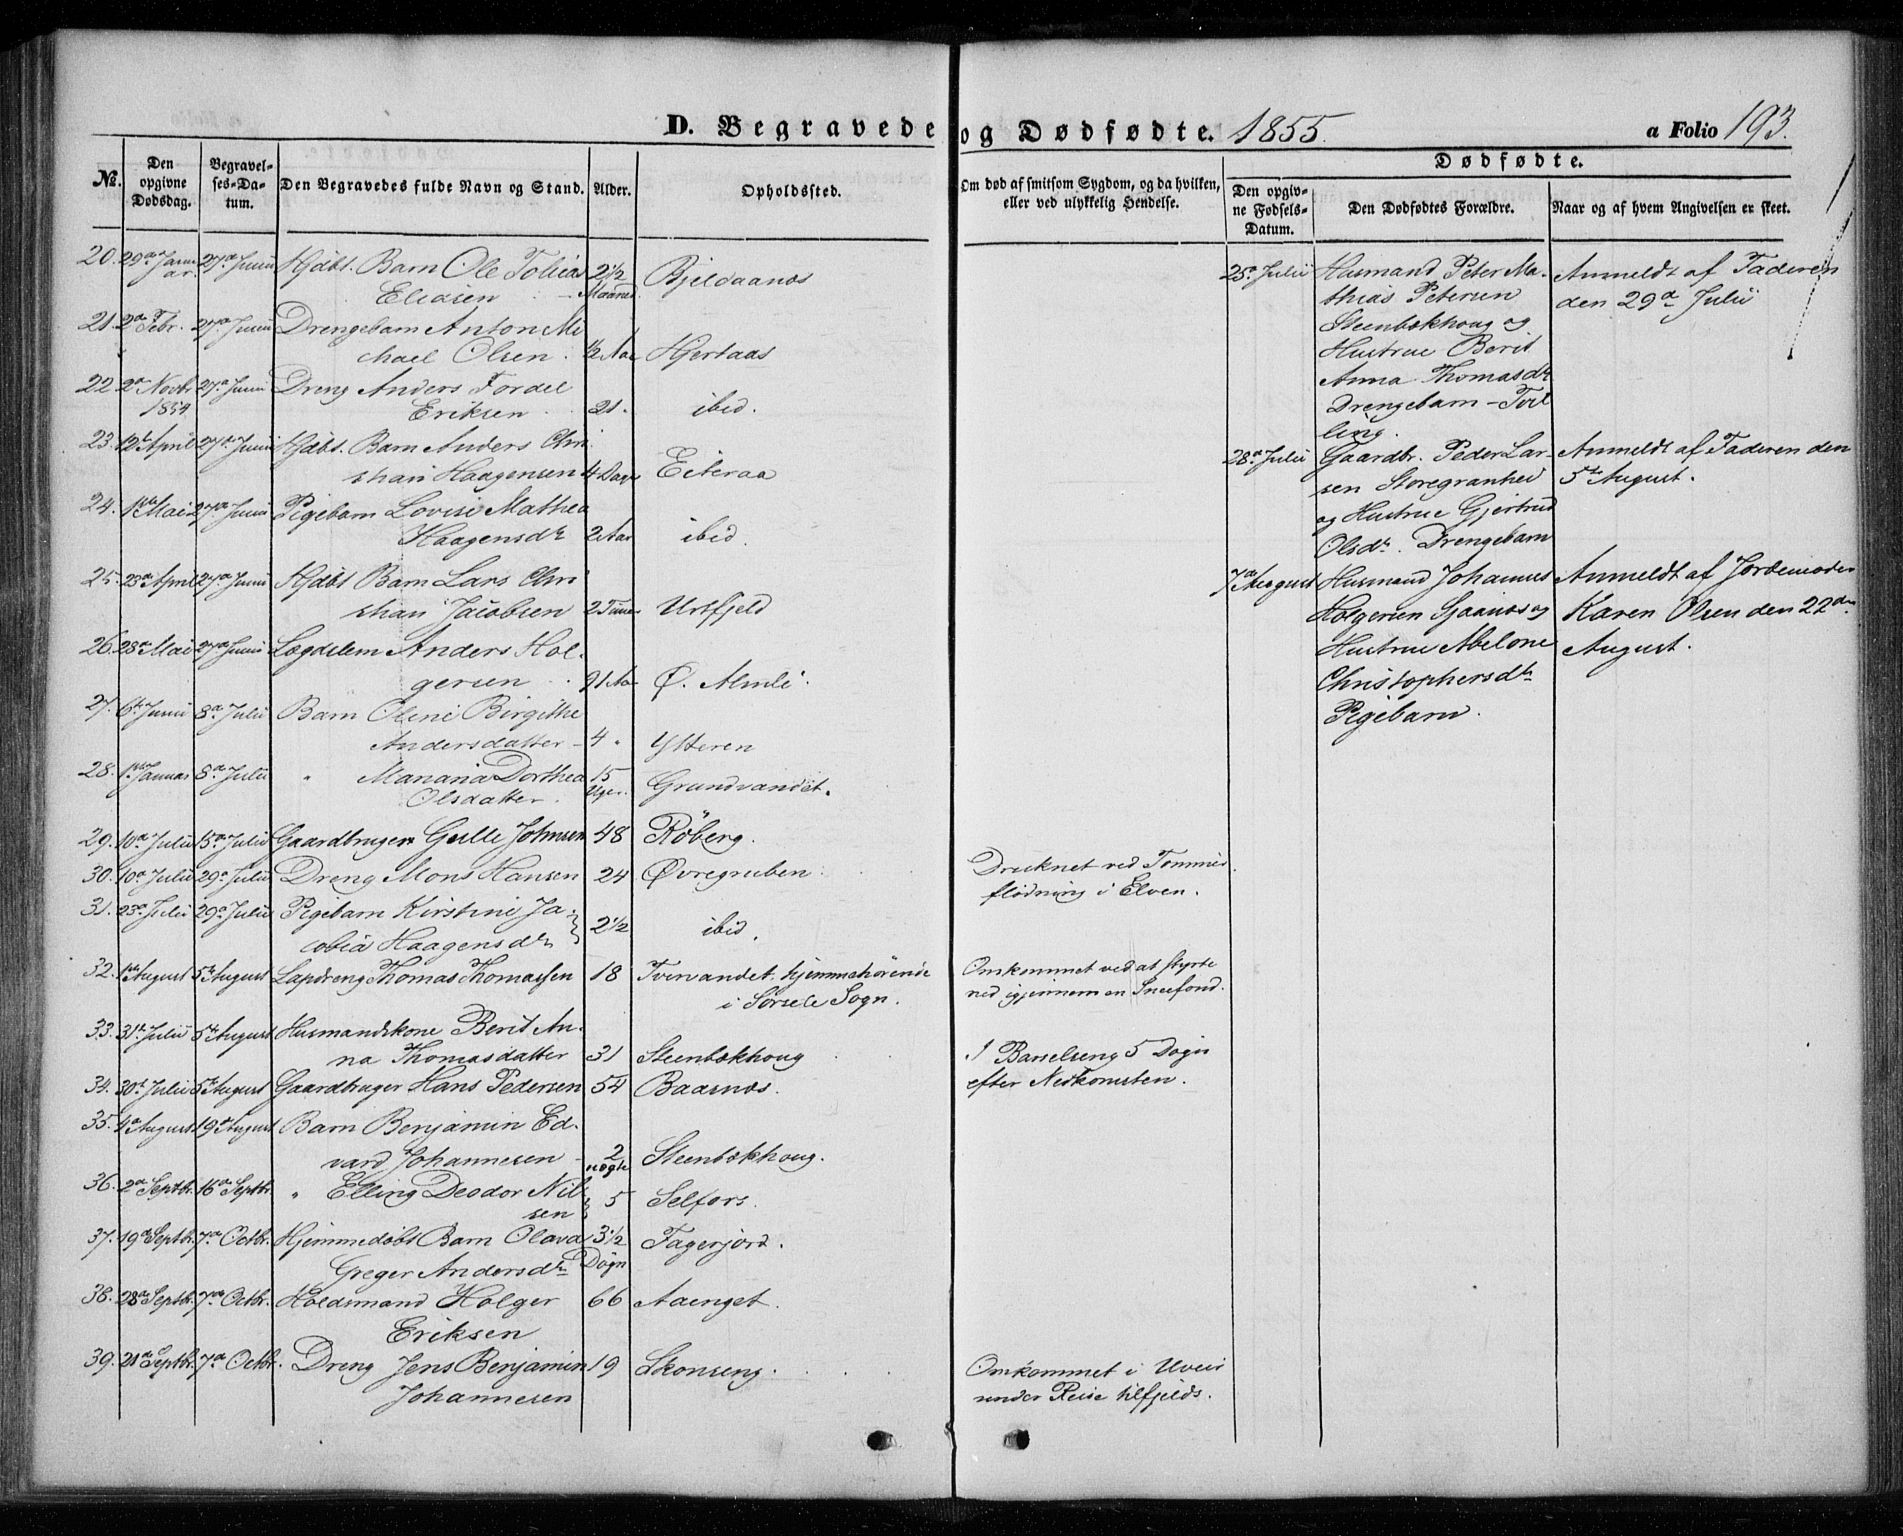 D. Begravede og Dødfødte. 1855. a Folio 193.
Dødfødte.
No. Den opgivne Dødsdag. Begravelses-Datum. Den Begravedes fulde Navn og Stand. Alder. Opholdssted. Om død af smitsom Sygdom, og da hvilken, eller ved ulykkelig Hendelse. Den opgivne Fødsels-Datum. Den Dødfødtes Forældre. Naar og af hvem Angivelsen er skeet.
20. 29de Januar 27de Junii Hjdbt. Barn Ole Tobias 2 1/2
Eliasen Maaned Bjeldaanæs
21. 2de Febr. 27de Junii Drengebarn Anton Mi
chael Olsen. 1/2 Aar Hjertaas
22. 2de Novbr. 27de Junii Dreng Anders Fordel
1854 Eriksen 21. ibid.
23. 12te April 27de Junii Hjdbt. Barn Anders Chri
stian Haagensen 4 Dage Eiteraa
24. 1ste Mai 27de Junii Pigebarn Lovise Mathea
Haagensdtr 2 Aar ibid.
25. 23de April 27de Junii Hjdbt Barn Lars Chri
stian Jacobsen 2 Timer Urtfjeld
26. 28de Mai 27de Junii Lægdslem Anders Hol-
gersen 91 Aar Ø. Almli.
27. 6te Junii 8de Julii Barn Oline Birgithe
Andersdatter 4 " Ytteren
28. 1ste Januar 8de Julii " Manaria Dorthea 15
Olsdatter. Uger. Grundvandet.
29. 10de Julii 15de Julii Gaardbruger Gulle Johnsen 48 Røberg.
30. 10de Julii 29de Julii Dreng Mons Hansen 24 Øvregruben. Druknet ved Tømmer
flødning i Elven.
31. 23de Julii 29de Julii Pigebarn Kirstine Ja-
cobia Haagensdtr 2 1/2 ibid.
32. 1ste August 5te August Lapdreng Thomas Thomassen 18 Tvervandet, hjemmehørende Omkommet ved at styrte
i Sørsele Sogn. ned igjennem en Sneefond.
33. 31te Julii 5te August Husmandskone Berit An-
na Thomasdatter 31 Steenbækhoug I Barselseng 5 Døgn
34. 30te Julii 5te August Gaardbruger Hans Pedersen 54 Baasnæs. efter Nedkomsten.
35. 4de August 19de August Barn Benjamin Ed-
vard Johannesen 2 Steenbækhoug.
36. 2den Septbr. 16de Septbr. " Elling Deodor Nil
sen 5 Selfors.
37. 19de Septbr. 7de Octbr. Hjemmedøbt Barn Olava 3 1/2
Greger Andersdtr Døgn Fagerjord.
38. 28de Septbr. 7de Octbr. Holdsmand Holger 66 Aaenget.
Eriksen
39. 21de Septbr. 7de Octbr. Dreng Jens Benjamin 19 Skonseng. Omkommet i Uveir
Johannesen under Reise tilfjelds.
25de Julii Husmand Peter Ma- Anmeldt af Faderen
thias Petersen den 29de Julii
Steenbækhoug og
Hustrue Berit
Anna Thomasdtr
Drengebarn - Tvil
ling.
28de Julii Gaardbr. Peder Lar- Anmeldt af Faderen den
sen Storegranhei 5te August.
og Hustrue Gjertrud
Olsdtr. Drengebarn
7de August Husmand Johannes Anmeldt af Jordemoder
Holgersen Sjaanæs og Karen Olsen den 22den
Hustrue Abelone August.
Christophersdtr
Pigebarn.